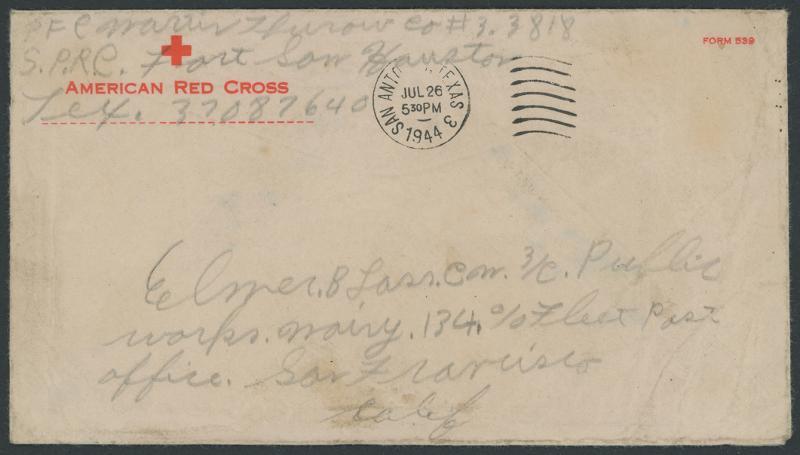 PFC Martin Thurow Co #3. 3818
S.P.R.C. Fort Sam Houston
AMERICAN RED CROSS
Tex. 37087640
FORM 539
SAN ANTONIO, TEXAS 3
JUL 26
5 30 PM
1944
Elmer. B Lass. C.M. 3/c. Public
works. Naivy. 134. c/o Fleet Post
office. San Francisco
Calif